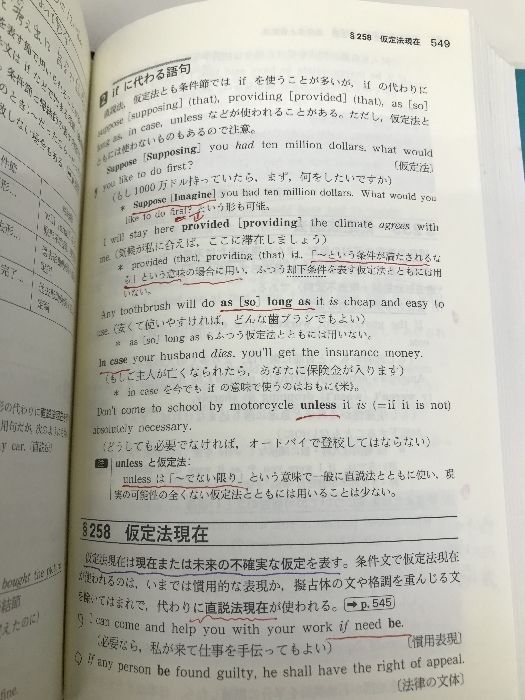 §258 仮定法現在 549
2 if に代わる語句
直説法, 仮定法とも条件節では if を使うことが多いが, if の代わりに
suppose [supposing] (that), providing [provided] (that), as [so]
long as, in case, unless などが使われることがある。ただし, 仮定法と
ともには使わないものもあるので注意。
Suppose [Supposing] you had ten million dollars, what would
you like to do first? 〔仮定法〕
(もし1000万ドル持っていたら, まず, 何をしたいですか)
* Suppose [Imagine] you had ten million dollars. What would you
like to do first? という形も可能。
I will stay here provided [providing] the climate agrees with
me. (気候が私に合えば, ここに滞在しましょう)
* provided (that), providing (that) は, 「〜という条件が満たされるな
ら」という意味の場合に用い, ふつう却下条件を表す仮定法とともには用
いない。
Any toothbrush will do as [so] long as it is cheap and easy to
use. (安くて使いやすければ, どんな歯ブラシでもよい)
* as [so] long as もふつう仮定法とともには用いない。
In case your husband dies, you'll get the insurance money.
(もしご主人が亡くなられたら, あなたに保険金が入ります)
* in case を今でも if の意味で使うのはおもに《米》。
Don't come to school by motorcycle unless it is (=if it is not)
absolutely necessary.
(どうしても必要でなければ, オートバイで登校してはならない)
注 unless と仮定法:
unless は「〜でない限り」という意味で一般に直説法とともに使い, 現
実の可能性の全くない仮定法とともには用いることは少ない。
§258 仮定法現在
仮定法現在は現在または未来の不確実な仮定を表す。条件文で仮定法現在
が使われるのは, いまでは慣用的な表現か, 擬古体の文や格調を重んじる文
を除いてはまれで, 代わりに直説法現在が使われる。(➡ p.545)
I can come and help you with your work if need be.
(必要なら, 私が来て仕事を手伝ってもよい) 〔慣用表現〕
If any person be found guilty, he shall have the right of appeal.
〔法律の文体〕